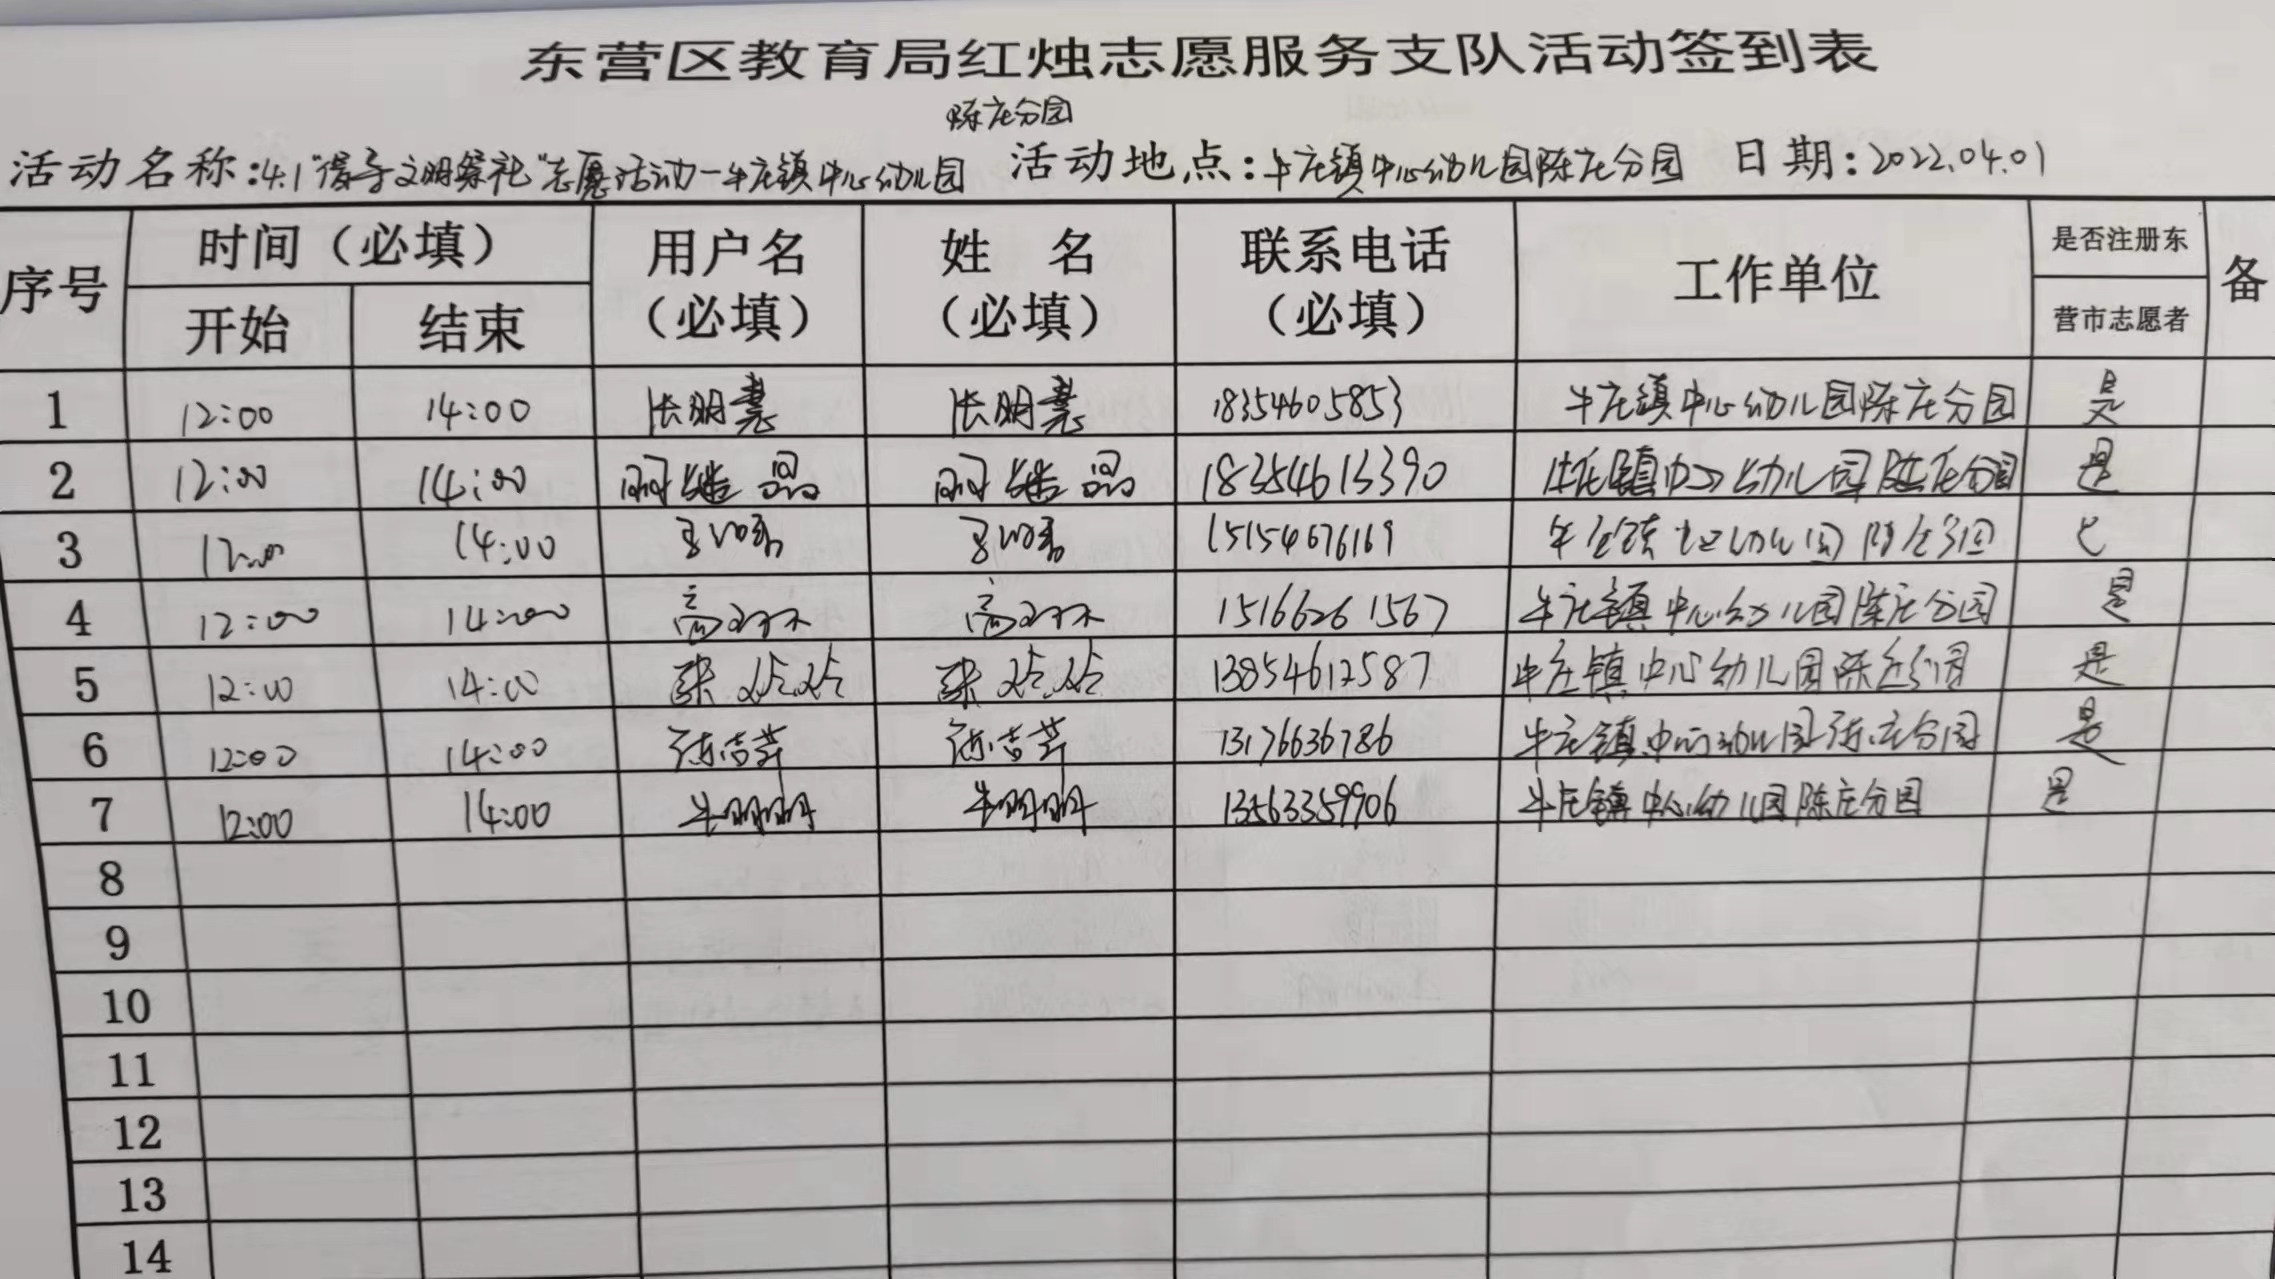 东营区教育局红烛志愿服务支队活动签到表
陈庄分园
活动名称:4.1"倡导文明祭祀"志愿活动—牛庄镇中心幼儿园 活动地点:牛庄镇中心幼儿园陈庄分园 日期:2022.04.01
序号 时间(必填) 用户名(必填) 姓 名(必填) 联系电话(必填) 工作单位 是否注册东营市志愿者 备
开始 结束
1 12:00 14:00 张明慧 张明慧 18354605853 牛庄镇中心幼儿园陈庄分园 是
2 12:00 14:00 18354613390 牛庄镇中心幼儿园陈庄分园 是
3 12:00 14:00 15154676169 牛庄镇中心幼儿园陈庄分园
4 12:00 14:00 高 高 15166261567 牛庄镇中心幼儿园陈庄分园 是
5 12:00 14:00 张 张 13854612587 牛庄镇中心幼儿园陈庄分园 是
6 12:00 14:00 13176636786 牛庄镇中心幼儿园陈庄分园 是
7 12:00 14:00 牛明明 牛明明 13563359906 牛庄镇中心幼儿园陈庄分园 是
8
9
10
11
12
13
14